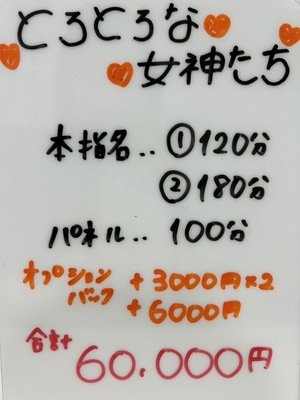 とろとろな
女神たち
本指名‥ ①120分
②180分
パネル‥ 100分
オプション
バック
+3000円×2
+6000円
合計
60.000円